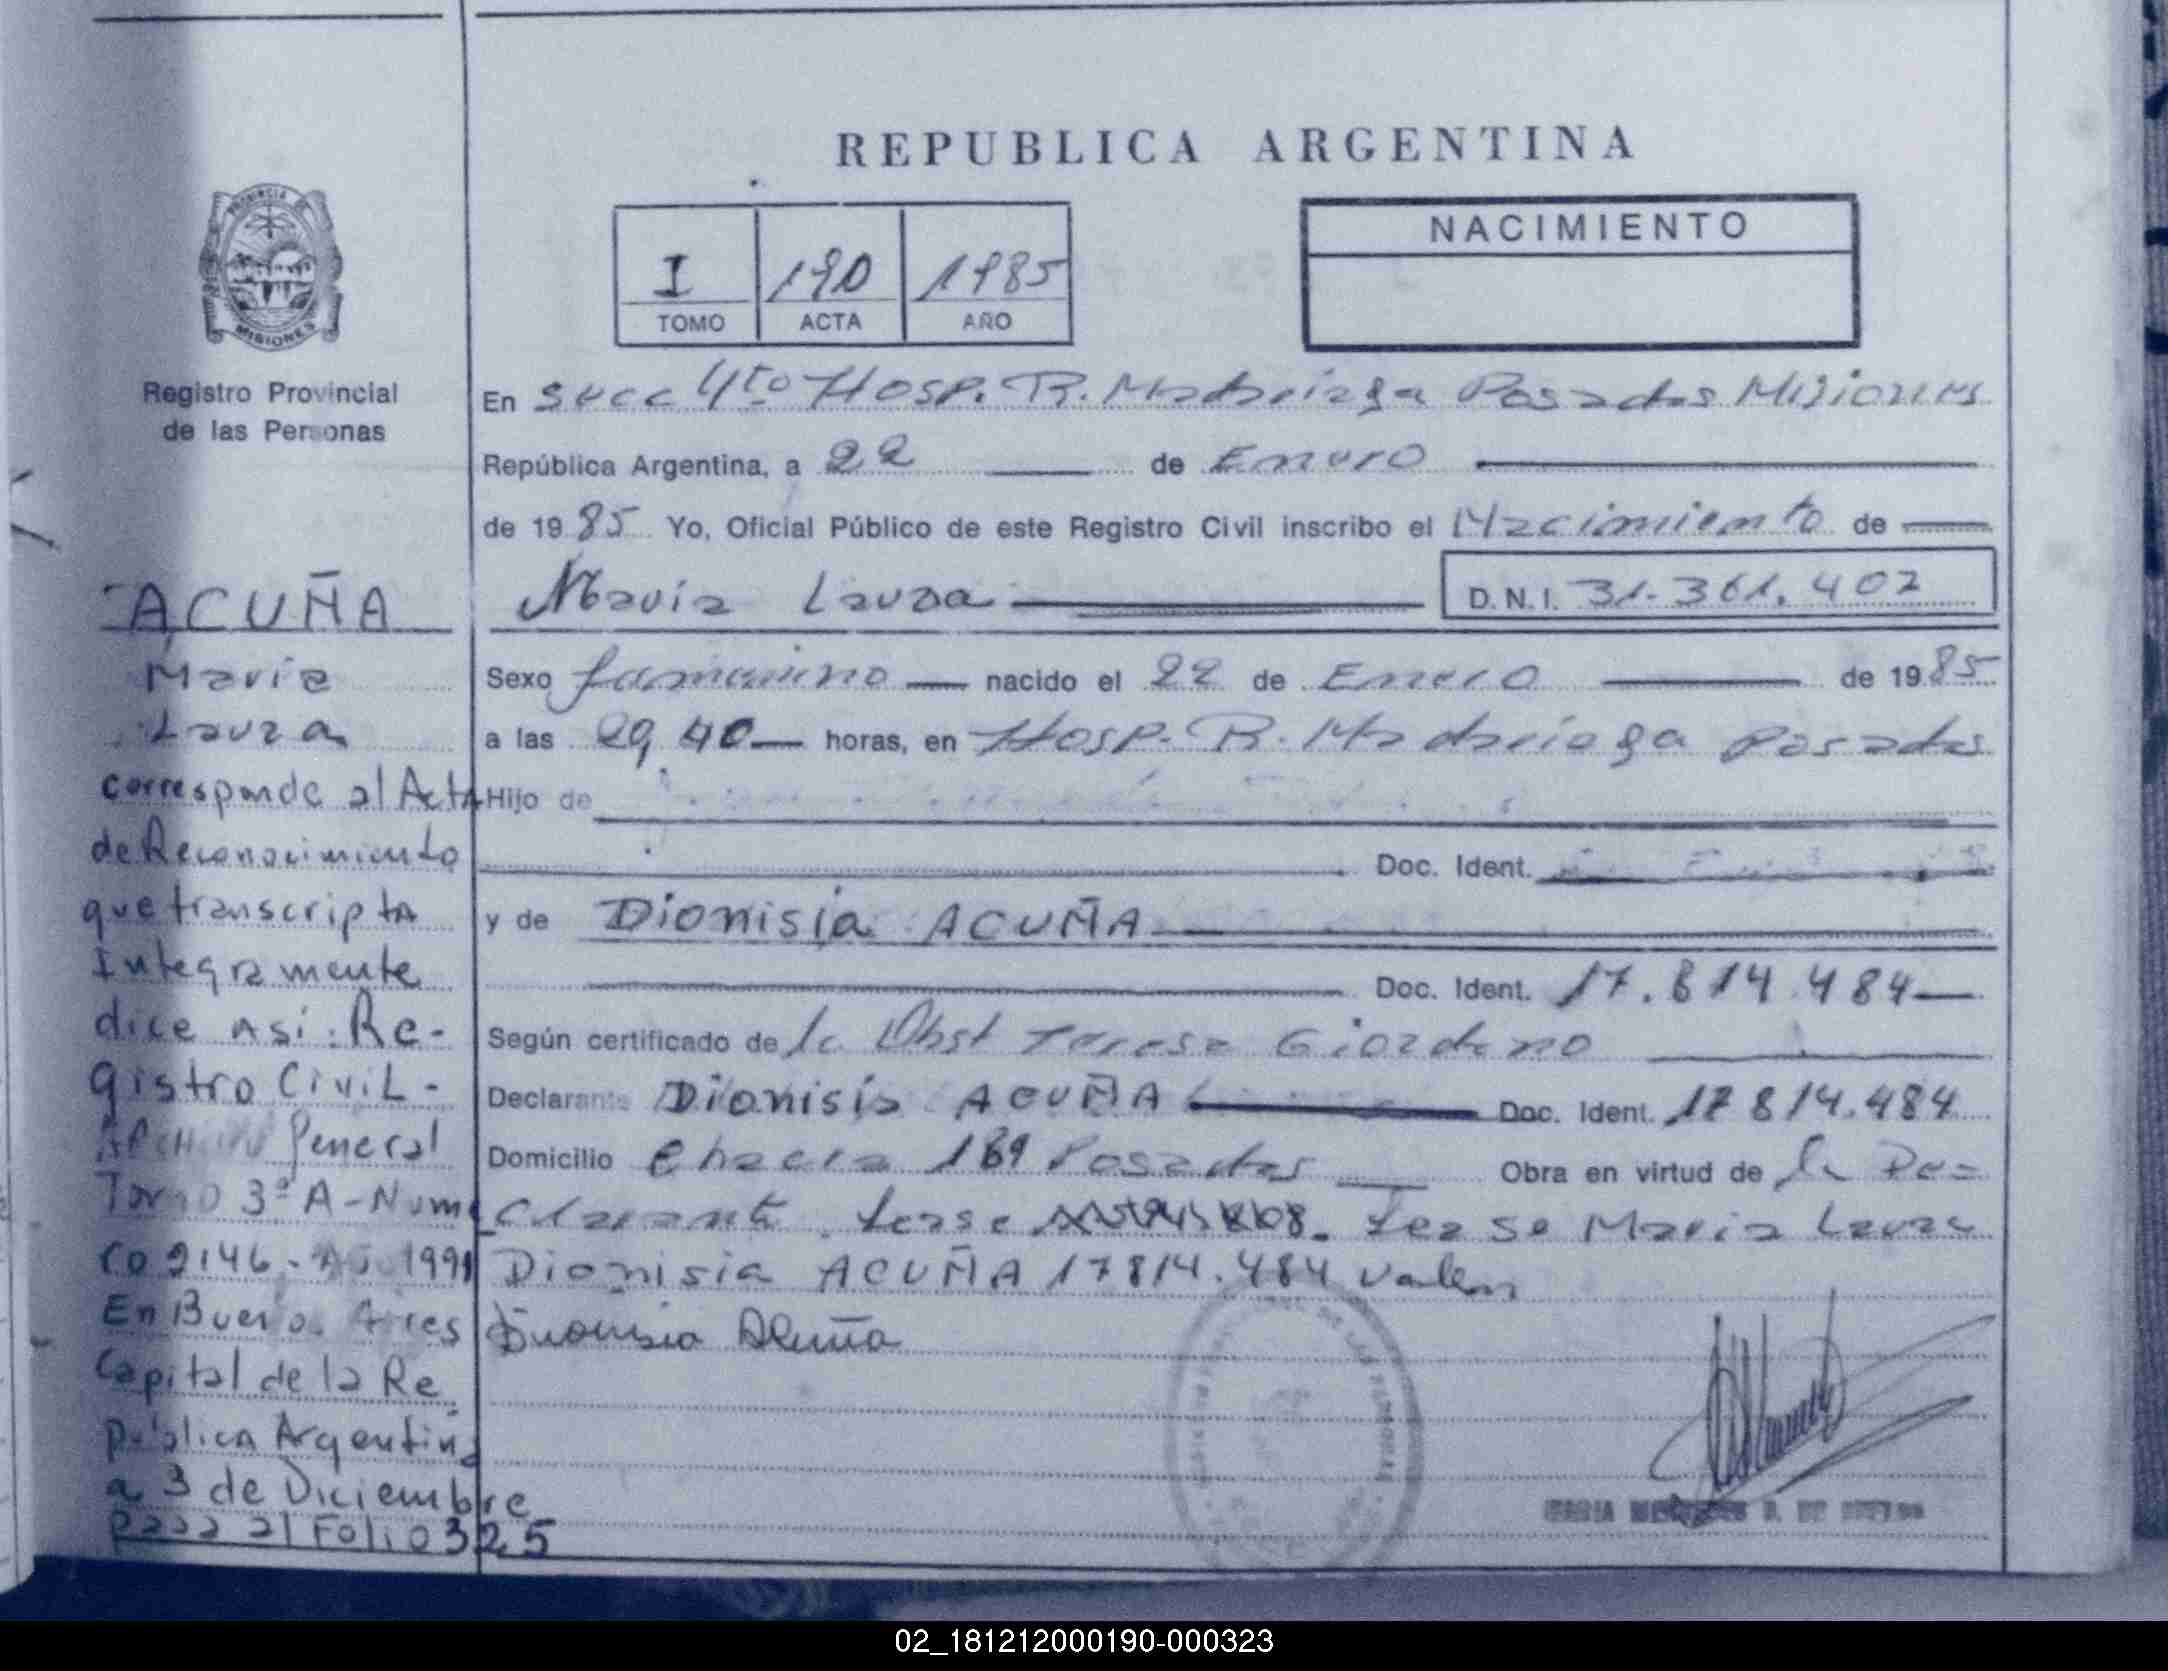 REPUBLICA ARGENTINA
PROVINCIA DE
MISIONES
Registro Provincial
de las Personas
I 190 1985
TOMO ACTA AÑO
NACIMIENTO
En succ 4to Hosp. R. Madariaga Posadas Misiones
República Argentina, a 22 de Enero
de 1985 Yo, Oficial Público de este Registro Civil inscribo el Nacimiento de
Maria Laura D.N.I. 31.361.402
Sexo femenino nacido el 22 de Enero de 1985
a las 20,40 horas, en Hosp. R. Madariaga Posadas
Hijo de
Doc. Ident.
y de Dionisia ACUÑA
Doc. Ident. 17.814.484
Según certificado de la Obst Teresa Giordano
Declarante Dionisia ACUÑA Doc. Ident. 17 814.484
Domicilio Chacra 189 Posadas Obra en virtud de la De=
clarante. Lease Lease Maria Laura
Dionisia ACUÑA 17814.484 valen
Dionisia Acuña
ACUÑA
Maria
Laura
corresponde al Acta
de Reconocimiento
que transcripta
Integramente
dice así: Re-
gistro Civil -
General
Tomo 3º A - Nume
ro 2146 - 1991
En Buenos Aires
Capital de la Re
pública Argentina
a 3 de Diciembre
Pasa al Folio 325
02_181212000190-000323